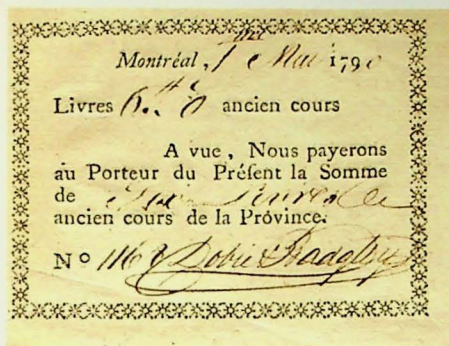 Montréal, 1 Mai 1790
Livres 6 ancien cours
A vue, Nous payerons
au Porteur du Préſent la Somme
de Livres
ancien cours de la Próvince.
Nº 116 Dobie & Badgley